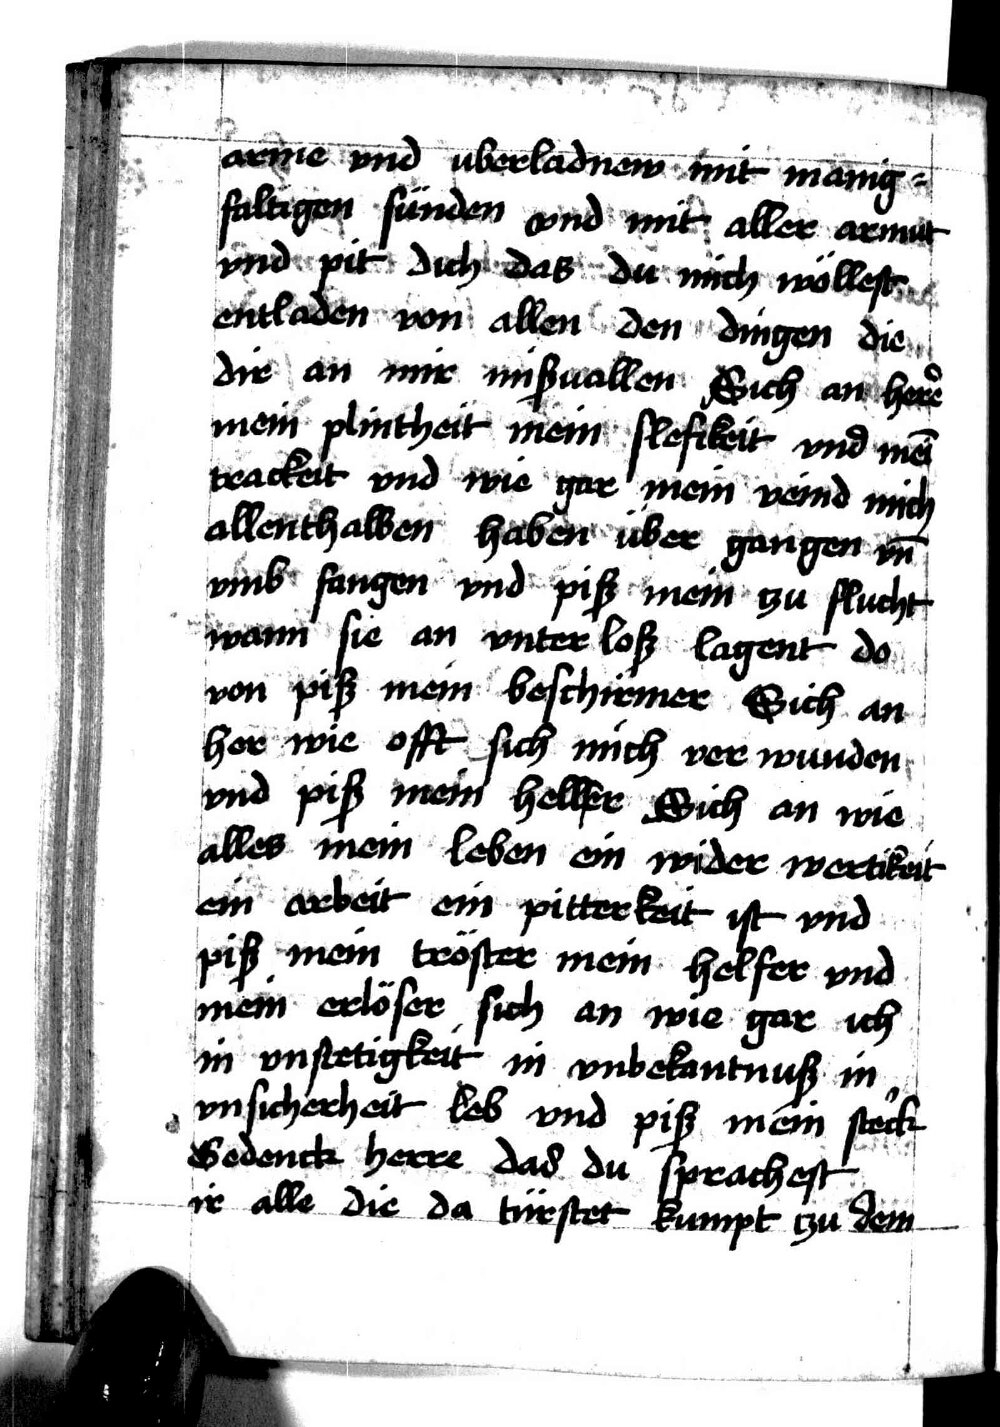 arme vnd uberladnew mit manig=
faltigen sünden vnd mit aller armut
vnd pit dich das du mich wöllest
entladen von allen den dingen die
dir an mir mißuallen Sich an herr̄e
mein plintheit mein slefikeit vnd mei̅
trackeit vnd wie gar mein veind mich
allenthalben haben über gangen vn̅
vmb fangen vnd piß mein tzu flucht
wann sie an vnter loß lagent do
von piß mein beschirmer Sich an
her wie offt sich mich ver wunden
vnd piß mein helffer Sich an wie
alles mein leben ein wider wertikeit
ein arbeit ein pitterkeit ist vnd
piß mein tröster mein helfer vnd
mein erlöser sich an wie gar ich
in vnstetigkeit in vnbekantnuß in
vnsicherheit leb vnd piß mein steck
Gedenck herre das du sprachest
ir alle die da türstet kumpt tzu dem